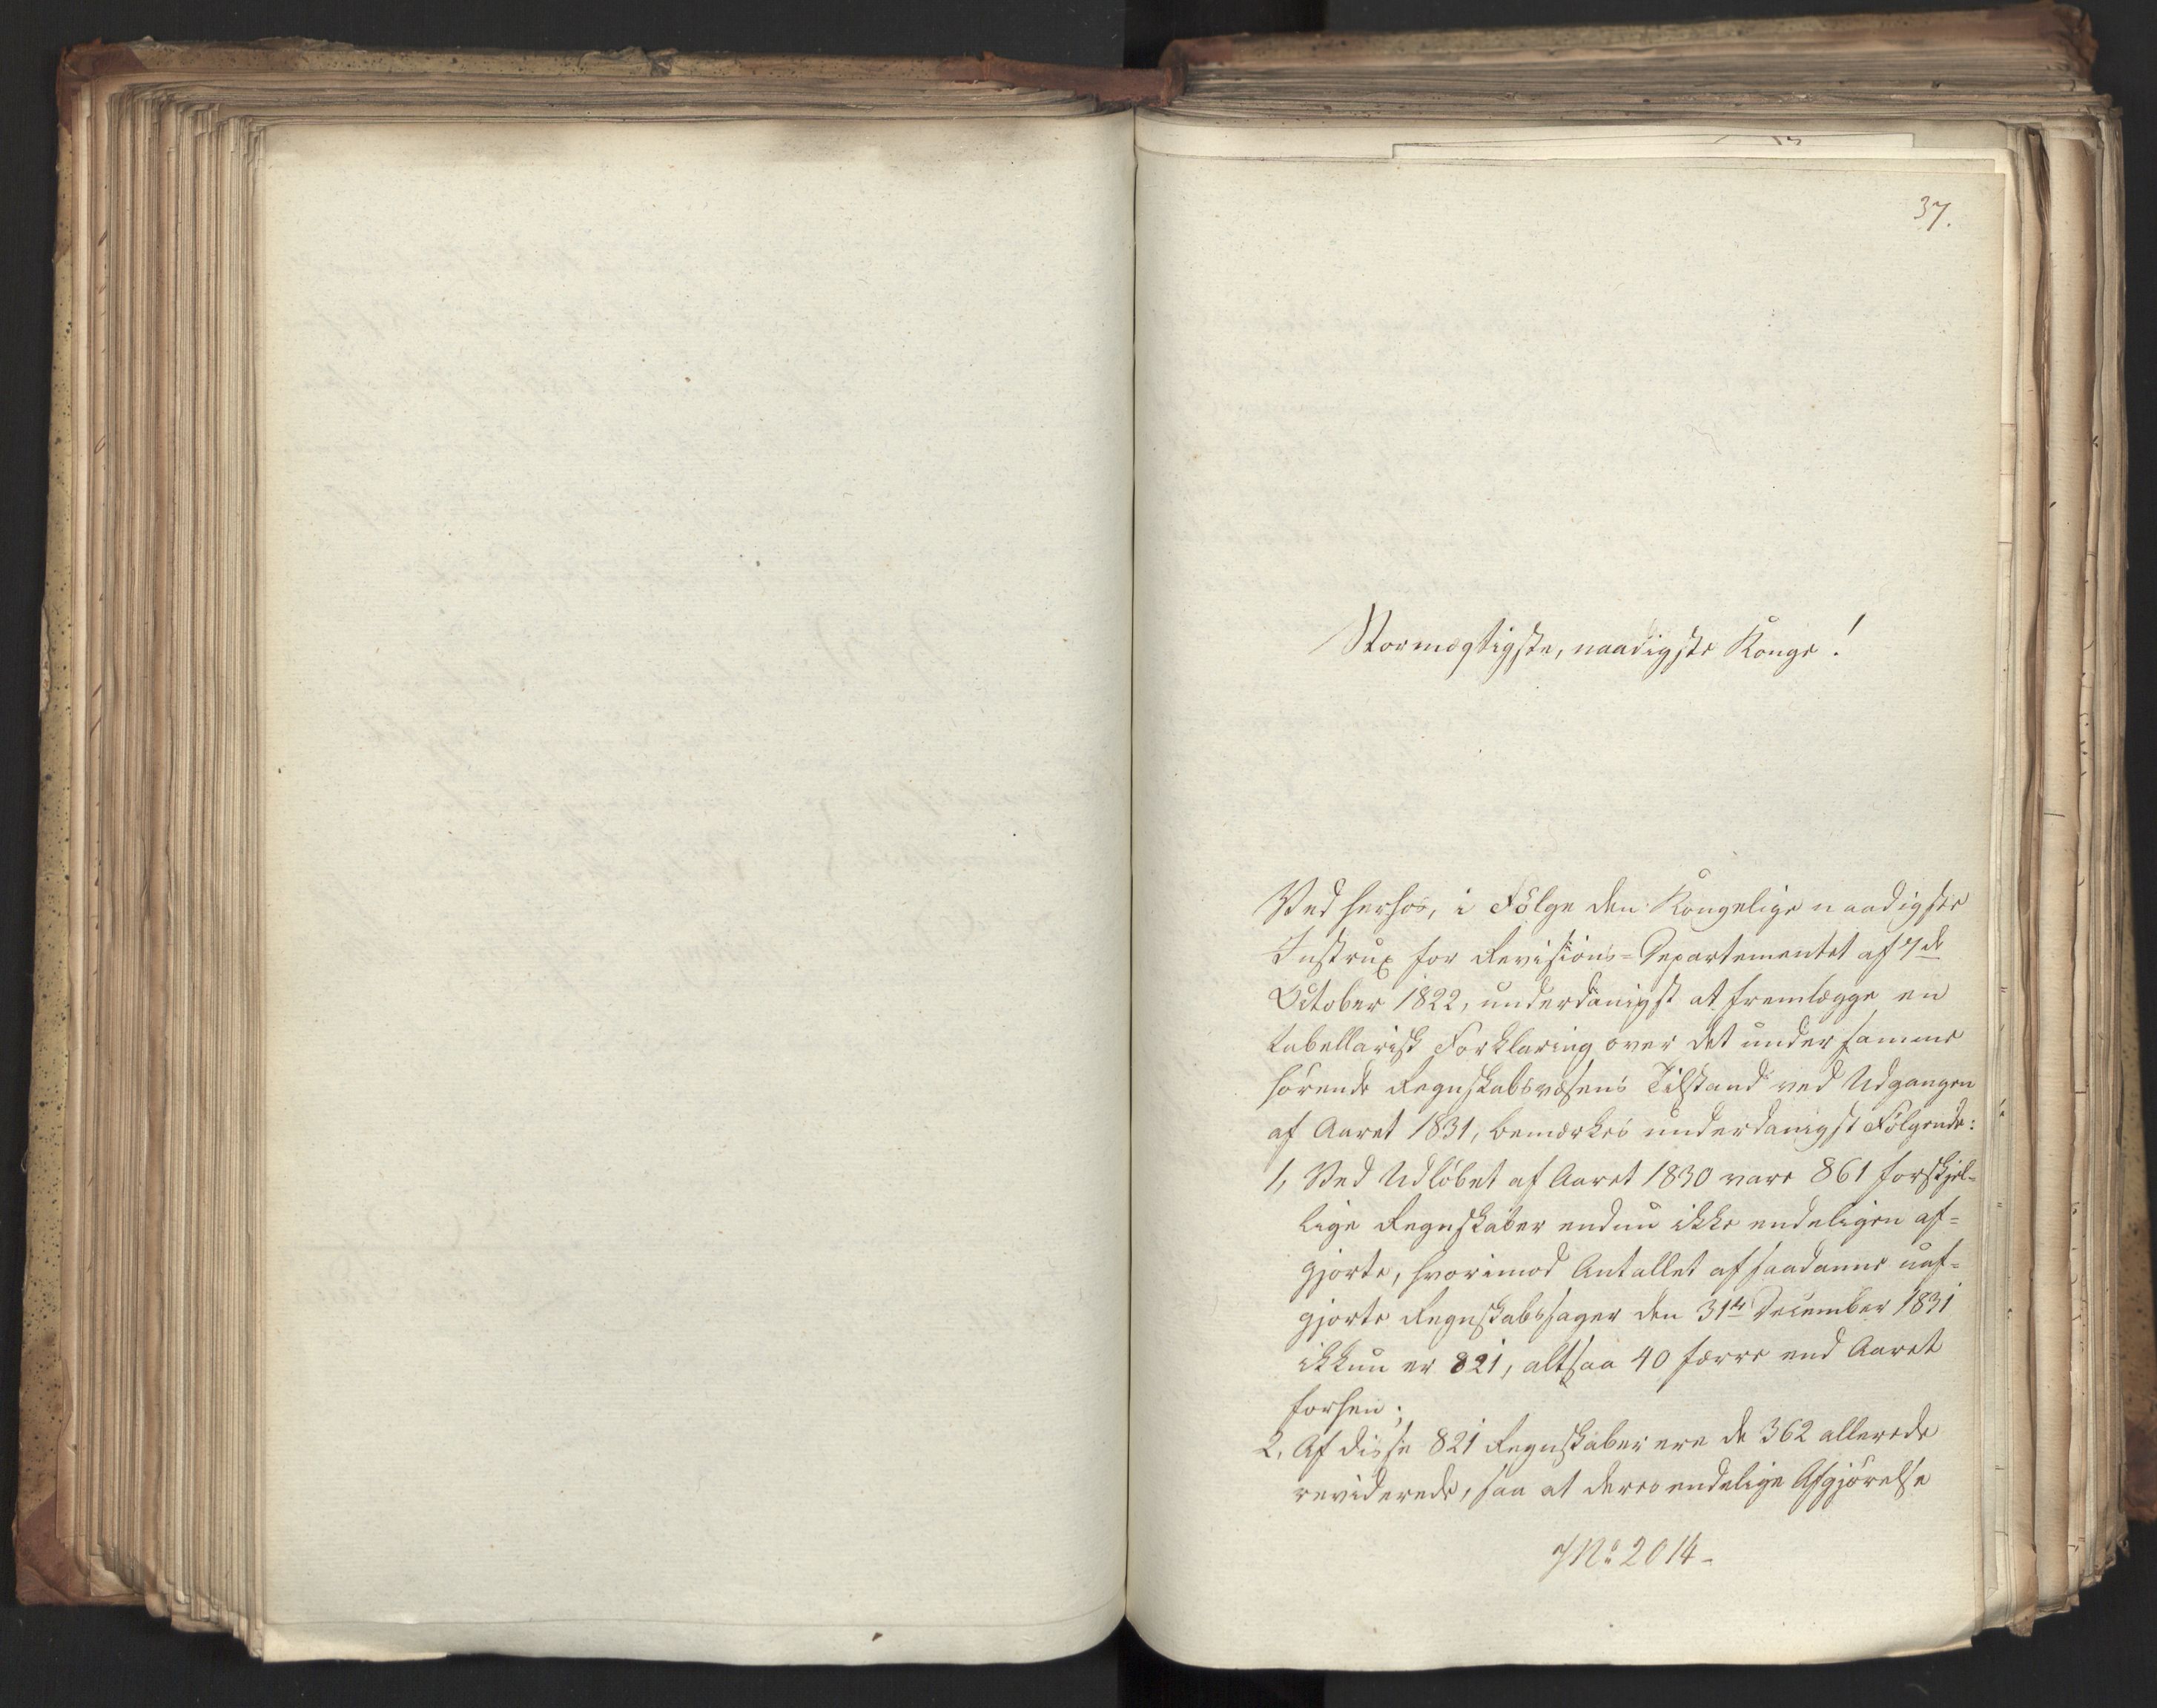 37.
Stormægtigste, naadigste Konge!
Ved herhos, i Følge den Kongelige naadigste
Instrux for Revisions=Departementet af 7de
October 1822, underdanigst at fremlægge en
tabellarisk Forklaring over det under samme
hørende Regnskabsvæsens Tilstand ved Udgangen
af Aaret 1831, bemærkes underdanigst Følgende:
1, Ved Udløbet af Aaret 1830 vare 861 forskjel=
lige Regnskaber endnu ikke endeligen af=
gjorte, hvorimod Antallet af saadanne uaf=
gjorte Regnskabssager den 31te December 1831
ikkun er 821, altsaa 40 færre end Aaret
forhen;
2, Af disse 821 Regnskaber ere de 362 allerede
reviderede, saa at deres endelige Afgjørelse
J No 2014-